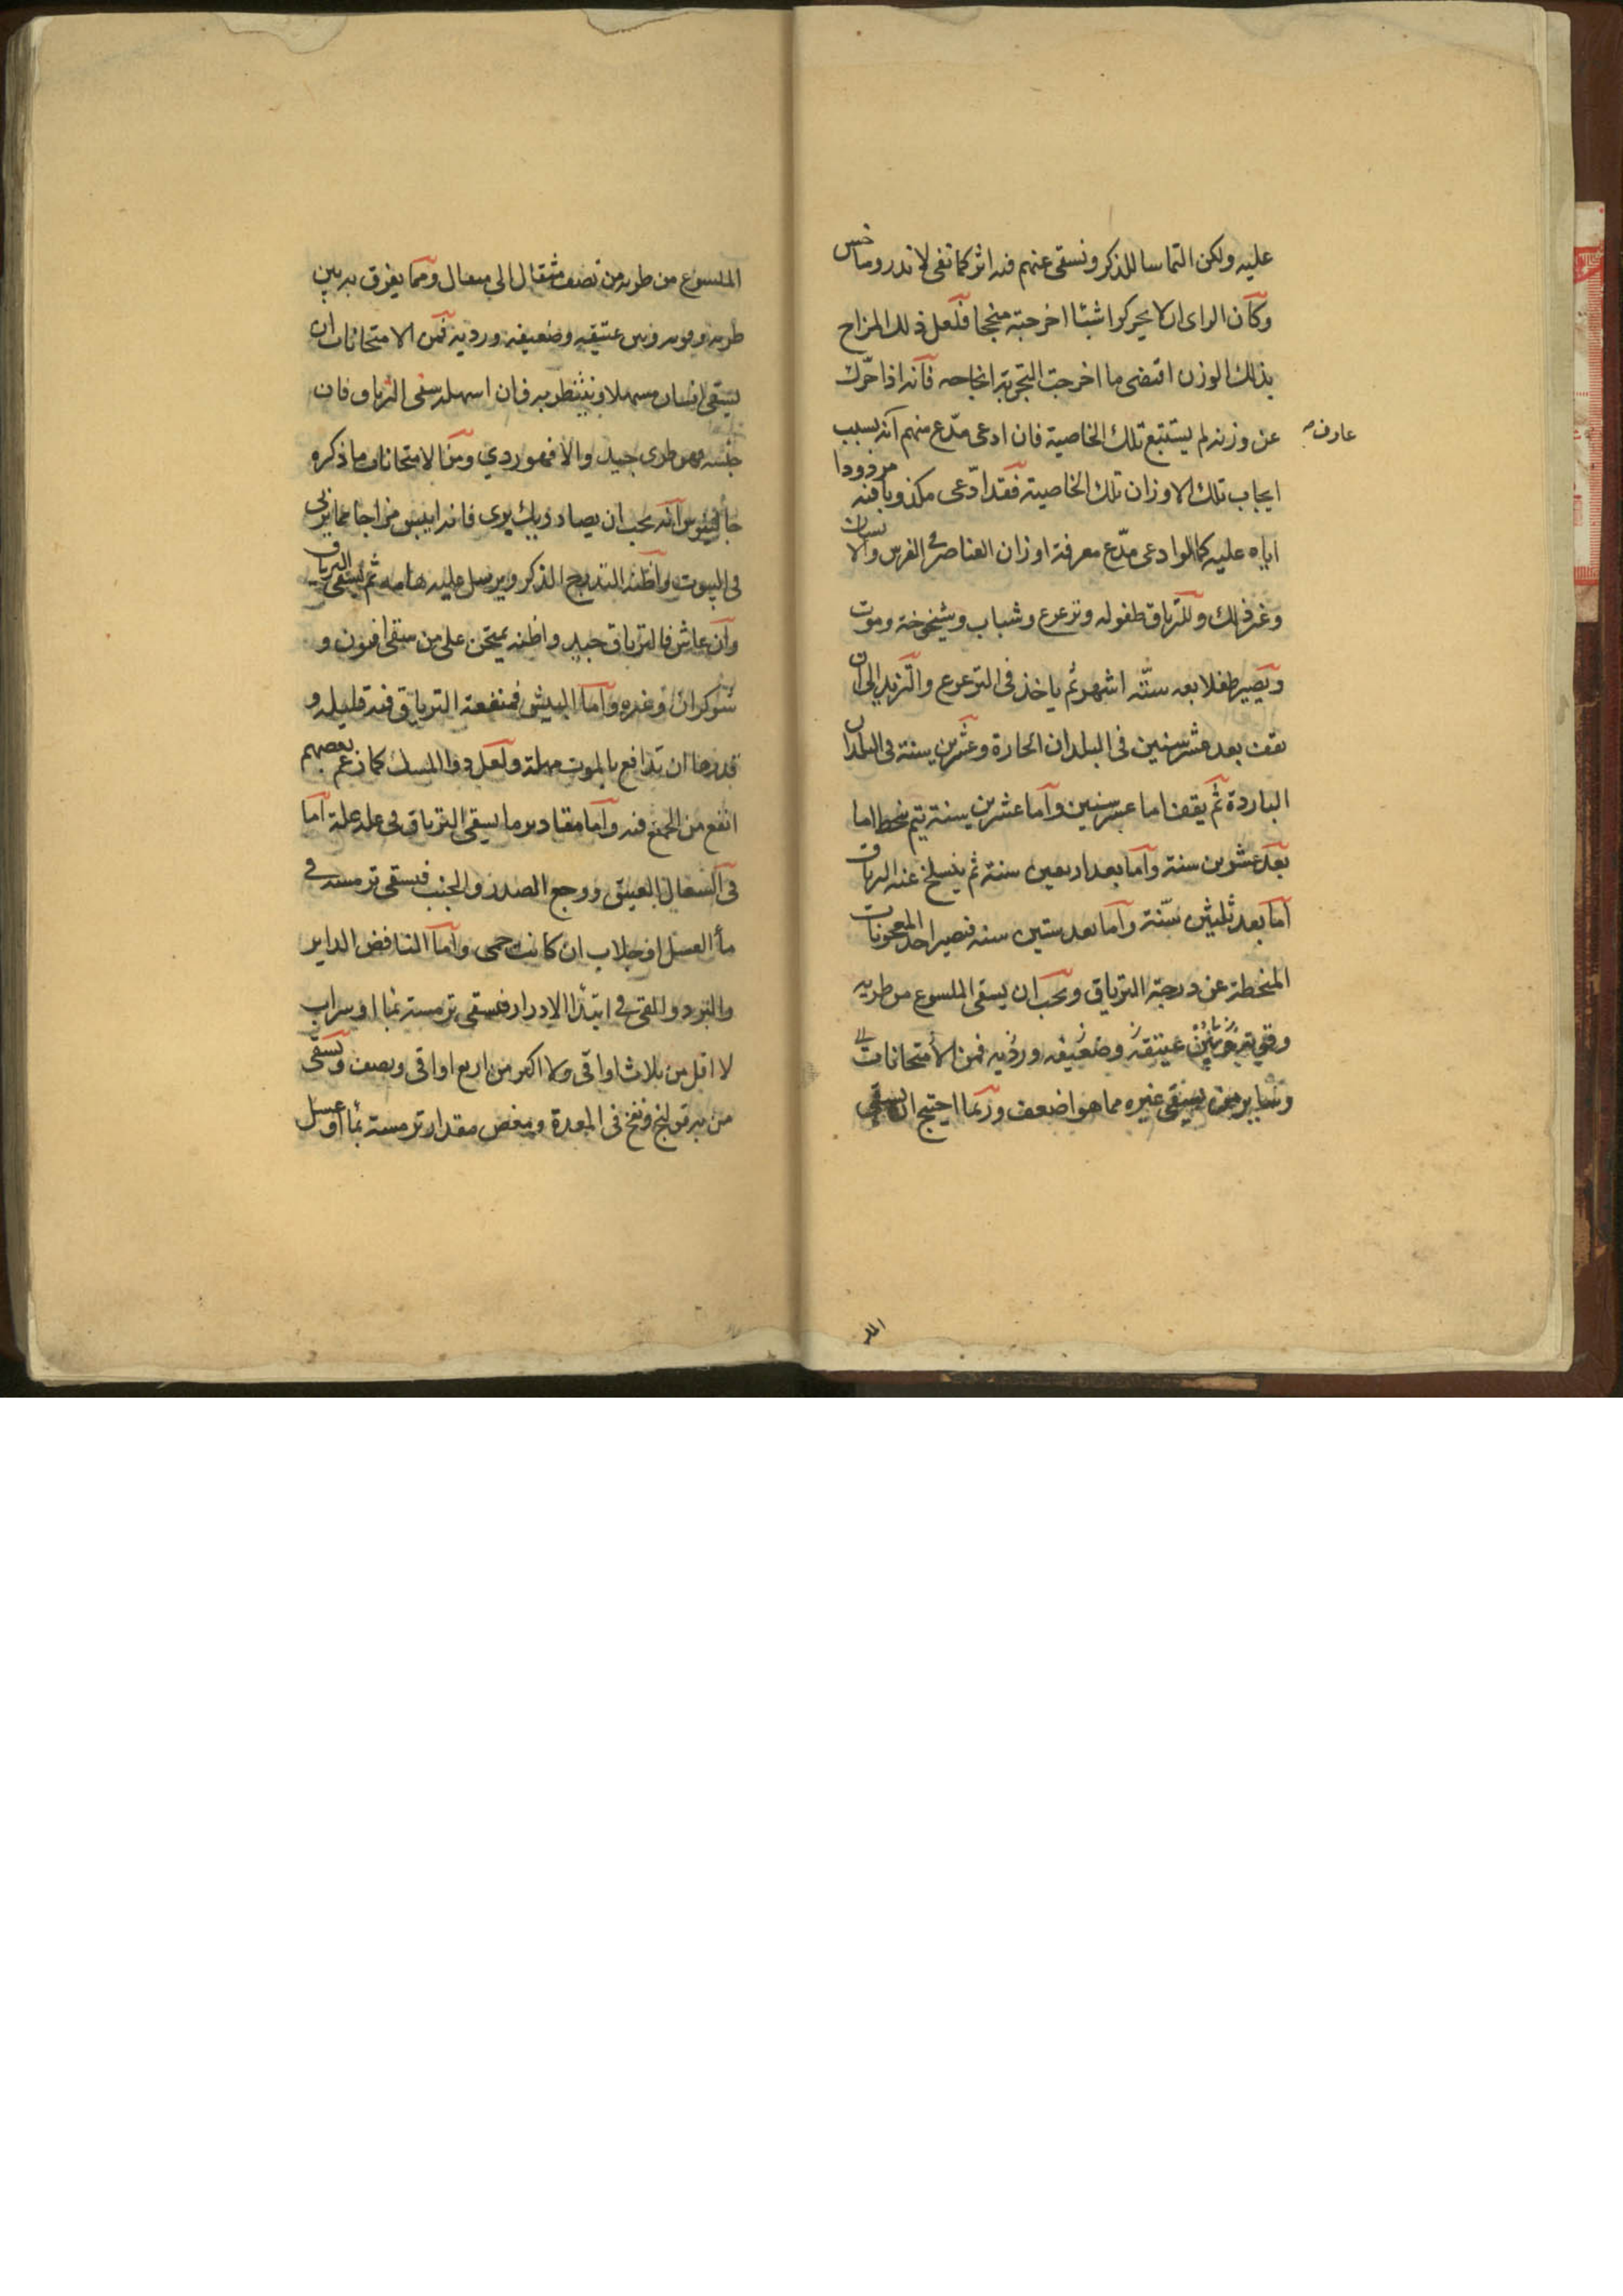 عليه ولكن التماسا للذكر ونسقى عنهم فيه اثر كما نفى لاندروماخس
وكان الراى ان لا يحركوا شيئا اخرجته منجحا فلعل ذلك المزاج
بذلك الوزن اقتضى ما اخرجت التجربة انجاحه فانه اذا حرك
عن وزنه لم يستتبع تلك الخاصية فان ادعى مدّع منهم انه بسبب
عارف
ايجاب تلك الاوزان تلك الخاصية فقد ادّعى مكذوبا فيه مردودا
اياه عليه كما لو ادعى مدّع معرفة اوزان العناصر فى الفرس والانسان
وغير ذلك وللترياق طفولة وترعرع وشباب وشيخوخة وموت
ويصير طفلا بعد ستة اشهر ثم ياخذ فى الترعرع والتزيد الى ان
يقف بعد عشر سنين فى البلدان الحارة وعشرين سنة فى البلدان
الباردة ثم يقف اما عشر سنين واما عشرين سنة ثم ينحط اما
بعد عشرين سنة واما بعد اربعين سنة ثم ينسلخ عنه الترياقية
اما بعد ثلثين سنة واما بعد ستين سنة فيصير احد المعجونات
المنحطة عن درجة الترياق ويجب ان يسقى الملسوع من طريه
وقويه عتيقه وضعيفه ورديه فمن الامتحانات
وساير من يسقى غيره مما هو اضعف وربما احتيج ان يسقى
الملسوع من طريه من نصف مثقال الى مثقال ومما يفرق به بين
طريه وقويه وبين عتيقه وضعيفه ورديه فمن الامتحانات ان
يسقى انسان مسهلا وينتظر به فان اسهله سقى الترياق فان
حبسه فهو طرى جيد والا فهو ردي ومن الامتحانات ما ذكره
جالينوس انه يجب ان يصاد ديك برى فانه ايبس مزاجا مما يربى
فى البيوت واظنه التدرج الذكر ويرسل عليه هامه ثم يسقى الترياق
وان عاش فالترياق جيد واظنه يمتحن على من سقى افيون و
شوكران وغيره واما البيش فمنفعة الترياق فيه قليله و
قدرها ان تدافع بالموت مهلة ولعل دوا المسك كما زعم بعضهم
انفع من الجميع فيه واما مقادير ما يسقى الترياق فى علة علة اما
فى السعال العتيق ووجع الصدر والجنب فيسقى ترمسة فى
مأ العسل او جلاب ان كانت حمى واما النافض الداير
والبرد والقى فى ابتدا الادوار فيسقى ترمسة بماء او شراب
لا اقل من ثلاث اواقى ولا اكثر من اربع اواقى ونصف ويسقى
من به قولنج ونفخ فى المعدة ومغص مقدار ترمسة بماء او عسل